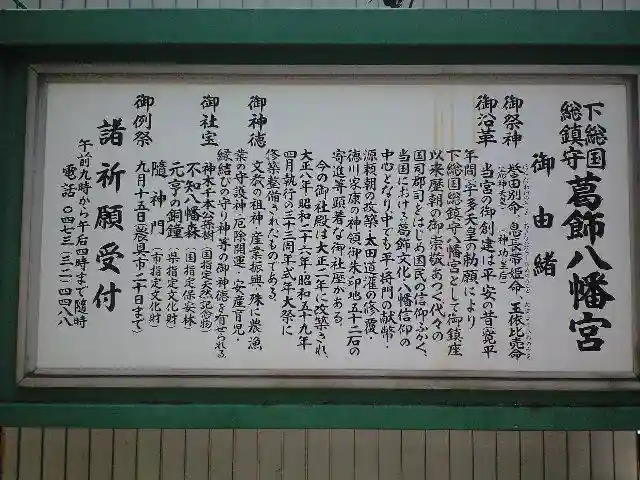 下総国
総鎮守
葛飾八幡宮
御由緒
御祭神
誉田別命 息長帯姫命 玉依比売命
(応神天皇) (神功皇后)
御沿革
当宮の御創建は平安の昔、寛平
年間宇多天皇の勅願により
下総国総鎮守八幡宮として御鎮座
以来歴朝の御崇敬あつく代々の
国司郡司をはじめ国民の信仰ふかく、
当国における葛飾文化八幡信仰の
中心となり中でも平将門の献幣・
源頼朝の改築・太田道灌の修覆・
徳川家康の神領御朱印地五十二石の
寄進等顕著な御社歴がある。
今の御社殿は大正二年に改築され、
大正八年昭和二十六年昭和五十九年
四月執行の三十三周年式年大祭に
修築整備されたものである。
御神徳
文教の祖神・産業振興、殊に農漁
業の守護神・厄除開運・安産育児・
縁結びの守り神等の御神徳を有せられる
御社宝
神木千本公孫樹(国指定天然記念物)
不知八幡森(国指定保安林)
元亨の銅鐘(県指定文化財)
隨神門(市指定文化財)
御例祭
九月十五日(農具市二十日まで)
諸祈願受付
午前九時から午后四時まで随時
電話 〇四七三‐三二‐四四八八